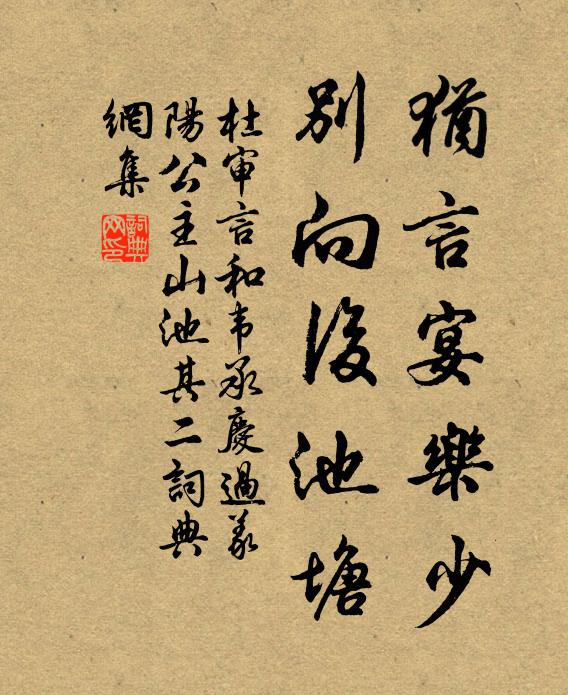 猶言宴樂少
別向後池塘
杜审言和韦承慶過義
陽公主山池其二詞典
網集
詞典
网印